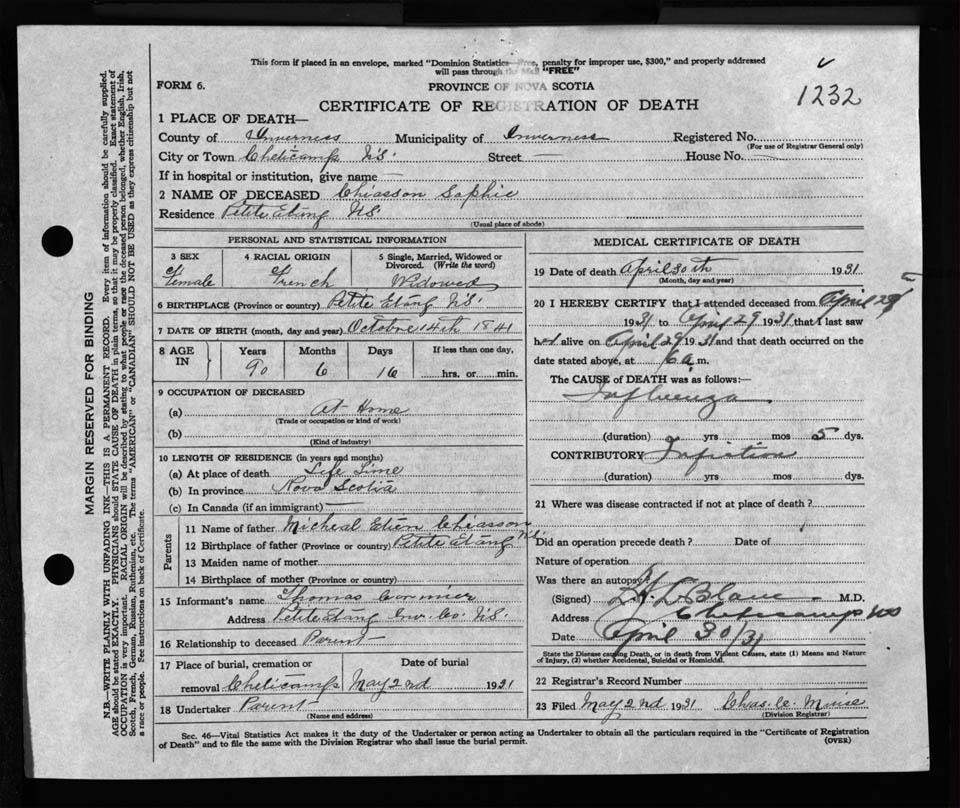 This form if placed in an envelope, marked "Dominion Statistics—Free, penalty for improper use, $300," and properly addressed
will pass through the Mail "FREE"
1232
FORM 6.
PROVINCE OF NOVA SCOTIA
CERTIFICATE OF REGISTRATION OF DEATH
1 PLACE OF DEATH—
County of Inverness Municipality of Inverness Registered No.
(For use of Registrar General only)
City or Town Cheticamp N.S. Street — House No. —
If in hospital or institution, give name —
2 NAME OF DECEASED Chiasson Sophie
Residence Petite Etang N.S.
(Usual place of abode)
PERSONAL AND STATISTICAL INFORMATION
3 SEX
Female
4 RACIAL ORIGIN
French
5 Single, Married, Widowed or
Divorced. (Write the word)
Widowed
6 BIRTHPLACE (Province or country) Petite Etang N.S.
7 DATE OF BIRTH (month, day and year) Octobre 14th 1841
8 AGE IN
Years Months Days If less than one day,
90 6 16 hrs. or min.
9 OCCUPATION OF DECEASED
(a) At Home
(Trade or occupation or kind of work)
(b)
(Kind of industry)
10 LENGTH OF RESIDENCE (in years and months)
(a) At place of death Life Time
(b) In province Nova Scotia
(c) In Canada (if an immigrant) —
Parents
11 Name of father Micheal Etien Chiasson
12 Birthplace of father (Province or country) Petite Etang N.S.
13 Maiden name of mother
14 Birthplace of mother (Province or country)
15 Informant's name Thomas Cormier
Address Petite Etang Inv. Co. N.S.
16 Relationship to deceased Parent
17 Place of burial, cremation or Date of burial
removal Cheticamp May 2nd 1931
18 Undertaker Parent
(Name and address)
MEDICAL CERTIFICATE OF DEATH
19 Date of death April 30th 1931
(Month, day and year)
20 I HEREBY CERTIFY that I attended deceased from April 25
1931 to April 29 1931 that I last saw
her alive on April 29 1931 and that death occurred on the
date stated above, at 6 a.m.
The CAUSE of DEATH was as follows:—
Influenza
(duration) yrs mos 5 dys.
CONTRIBUTORY
(duration) yrs mos dys.
21 Where was disease contracted if not at place of death?
Did an operation precede death? Date of
Nature of operation
Was there an autopsy?
(Signed) LeBlanc M.D.
Address Cheticamp
Date April 30/31
State the Disease causing Death, or in death from Violent Causes, state (1) Means and Nature
of Injury, (2) whether Accidental, Suicidal or Homicidal.
22 Registrar's Record Number
23 Filed May 2nd 1931 Chas. W.
(Division Registrar)
Sec. 46—Vital Statistics Act makes it the duty of the Undertaker or person acting as Undertaker to obtain all the particulars required in the "Certificate of Registration
of Death" and to file the same with the Division Registrar who shall issue the burial permit.
(OVER)
MARGIN RESERVED FOR BINDING
N.B.—WRITE PLAINLY WITH UNFADING INK—THIS IS A PERMANENT RECORD. Every item of information should be carefully supplied.
AGE should be stated EXACTLY. PHYSICIANS should STATE CAUSE OF DEATH in plain terms, so that it may be properly classified. Exact statement of
OCCUPATION is very important. RACIAL ORIGIN will be described by stating to what people or race the deceased person belonged, whether English, Irish,
Scotch, French, German, Russian, Ruthenian, etc. The terms "AMERICAN" or "CANADIAN" SHOULD NOT BE USED as they express citizenship but not
a race or people. See instructions on back of Certificate.